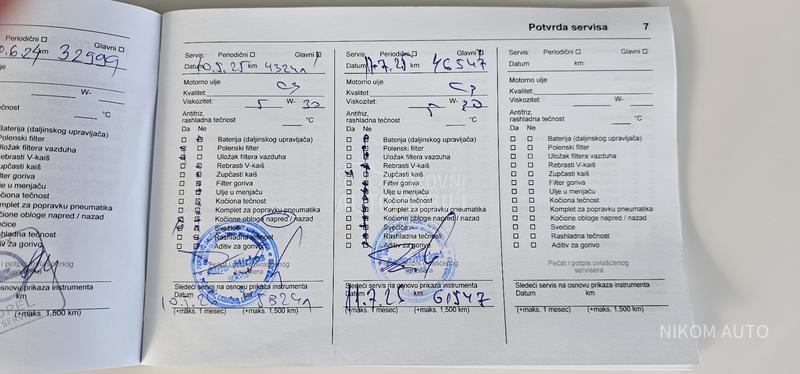 Potvrda servisa 7
Periodični Glavni
0.6.24 km 32999
W-
°C
Baterija (daljinskog upravljača)
Polenski filter
Uložak filtera vazduha
Rebrasti V-kaiš
Zupčasti kaiš
Filter goriva
Ulje u menjaču
Kočiona tečnost
Komplet za popravku pneumatika
Kočione obloge napred / nazad
Svećice
Rashladna tečnost
Aditiv za gorivo
osnovu prikaza instrumenta
km
(+maks. 1,500 km)
Servis: Periodični Glavni
Datum 10.5.25 km
Motorno ulje
Kvalitet: C3
Viskozitet: 5 W- 30
Antifriz,
rashladna tečnost °C
Da Ne
Baterija (daljinskog upravljača)
Polenski filter
Uložak filtera vazduha
Rebrasti V-kaiš
Zupčasti kaiš
Filter goriva
Ulje u menjaču
Kočiona tečnost
Komplet za popravku pneumatika
Kočione obloge napred / nazad
Svećice
Rashladna tečnost
Aditiv za gorivo
Sledeći servis na osnovu prikaza instrumenta
Datum km
(+maks. 1 mesec) (+maks. 1,500 km)
Servis: Periodični Glavni
Datum 17.7.25 km 46547
Motorno ulje
Kvalitet: C3
Viskozitet: 5 W- 30
Antifriz,
rashladna tečnost °C
Da Ne
Baterija (daljinskog upravljača)
Polenski filter
Uložak filtera vazduha
Rebrasti V-kaiš
Zupčasti kaiš
Filter goriva
Ulje u menjaču
Kočiona tečnost
Komplet za popravku pneumatika
Kočione obloge napred / nazad
Svećice
Rashladna tečnost
Aditiv za gorivo
Sledeći servis na osnovu prikaza instrumenta
Datum km 61547
(+maks. 1 mesec) (+maks. 1,500 km)
Servis: Periodični Glavni
Datum km
Motorno ulje
Kvalitet:
Viskozitet: W-
Antifriz,
rashladna tečnost °C
Da Ne
Baterija (daljinskog upravljača)
Polenski filter
Uložak filtera vazduha
Rebrasti V-kaiš
Zupčasti kaiš
Filter goriva
Ulje u menjaču
Kočiona tečnost
Komplet za popravku pneumatika
Kočione obloge napred / nazad
Svećice
Rashladna tečnost
Aditiv za gorivo
Pečat i potpis ovlašćenog
servisera
Sledeći servis na osnovu prikaza instrumenta
Datum km
(+maks. 1 mesec) (+maks. 1,500 km)
NIKOM AUTO